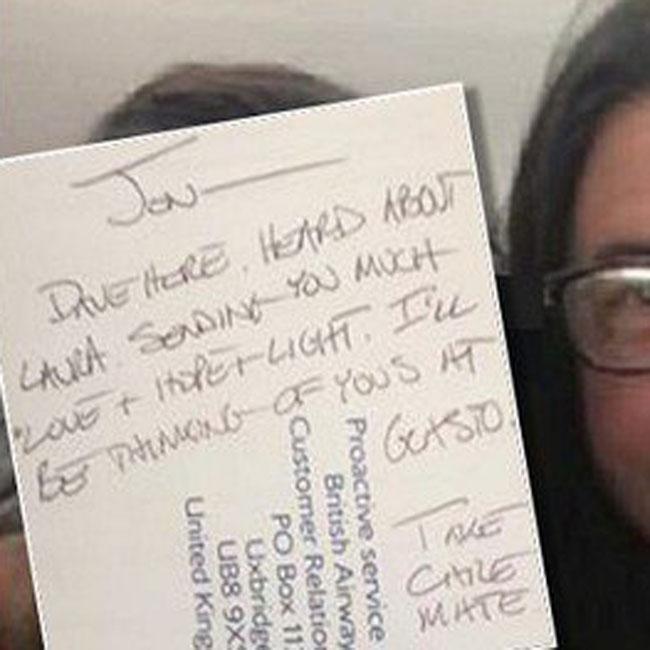 JON
DAVE HERE. HEARD ABOUT
LAURA. SENDING YOU MUCH
LOVE + HOPE + LIGHT. I'LL
BE THINKING OF YOUS AT
GLASTO.
TAKE
CARE
MATE
Proactive service
British Airway
Customer Relatio
PO Box 11
Uxbridge
UB8 9X
United King